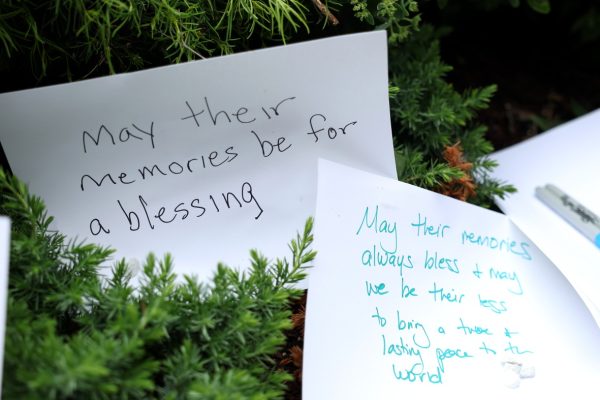 May their
memories be for
a blessing
May their memories
always bless & may
we be their
to bring a true &
lasting peace to the
world